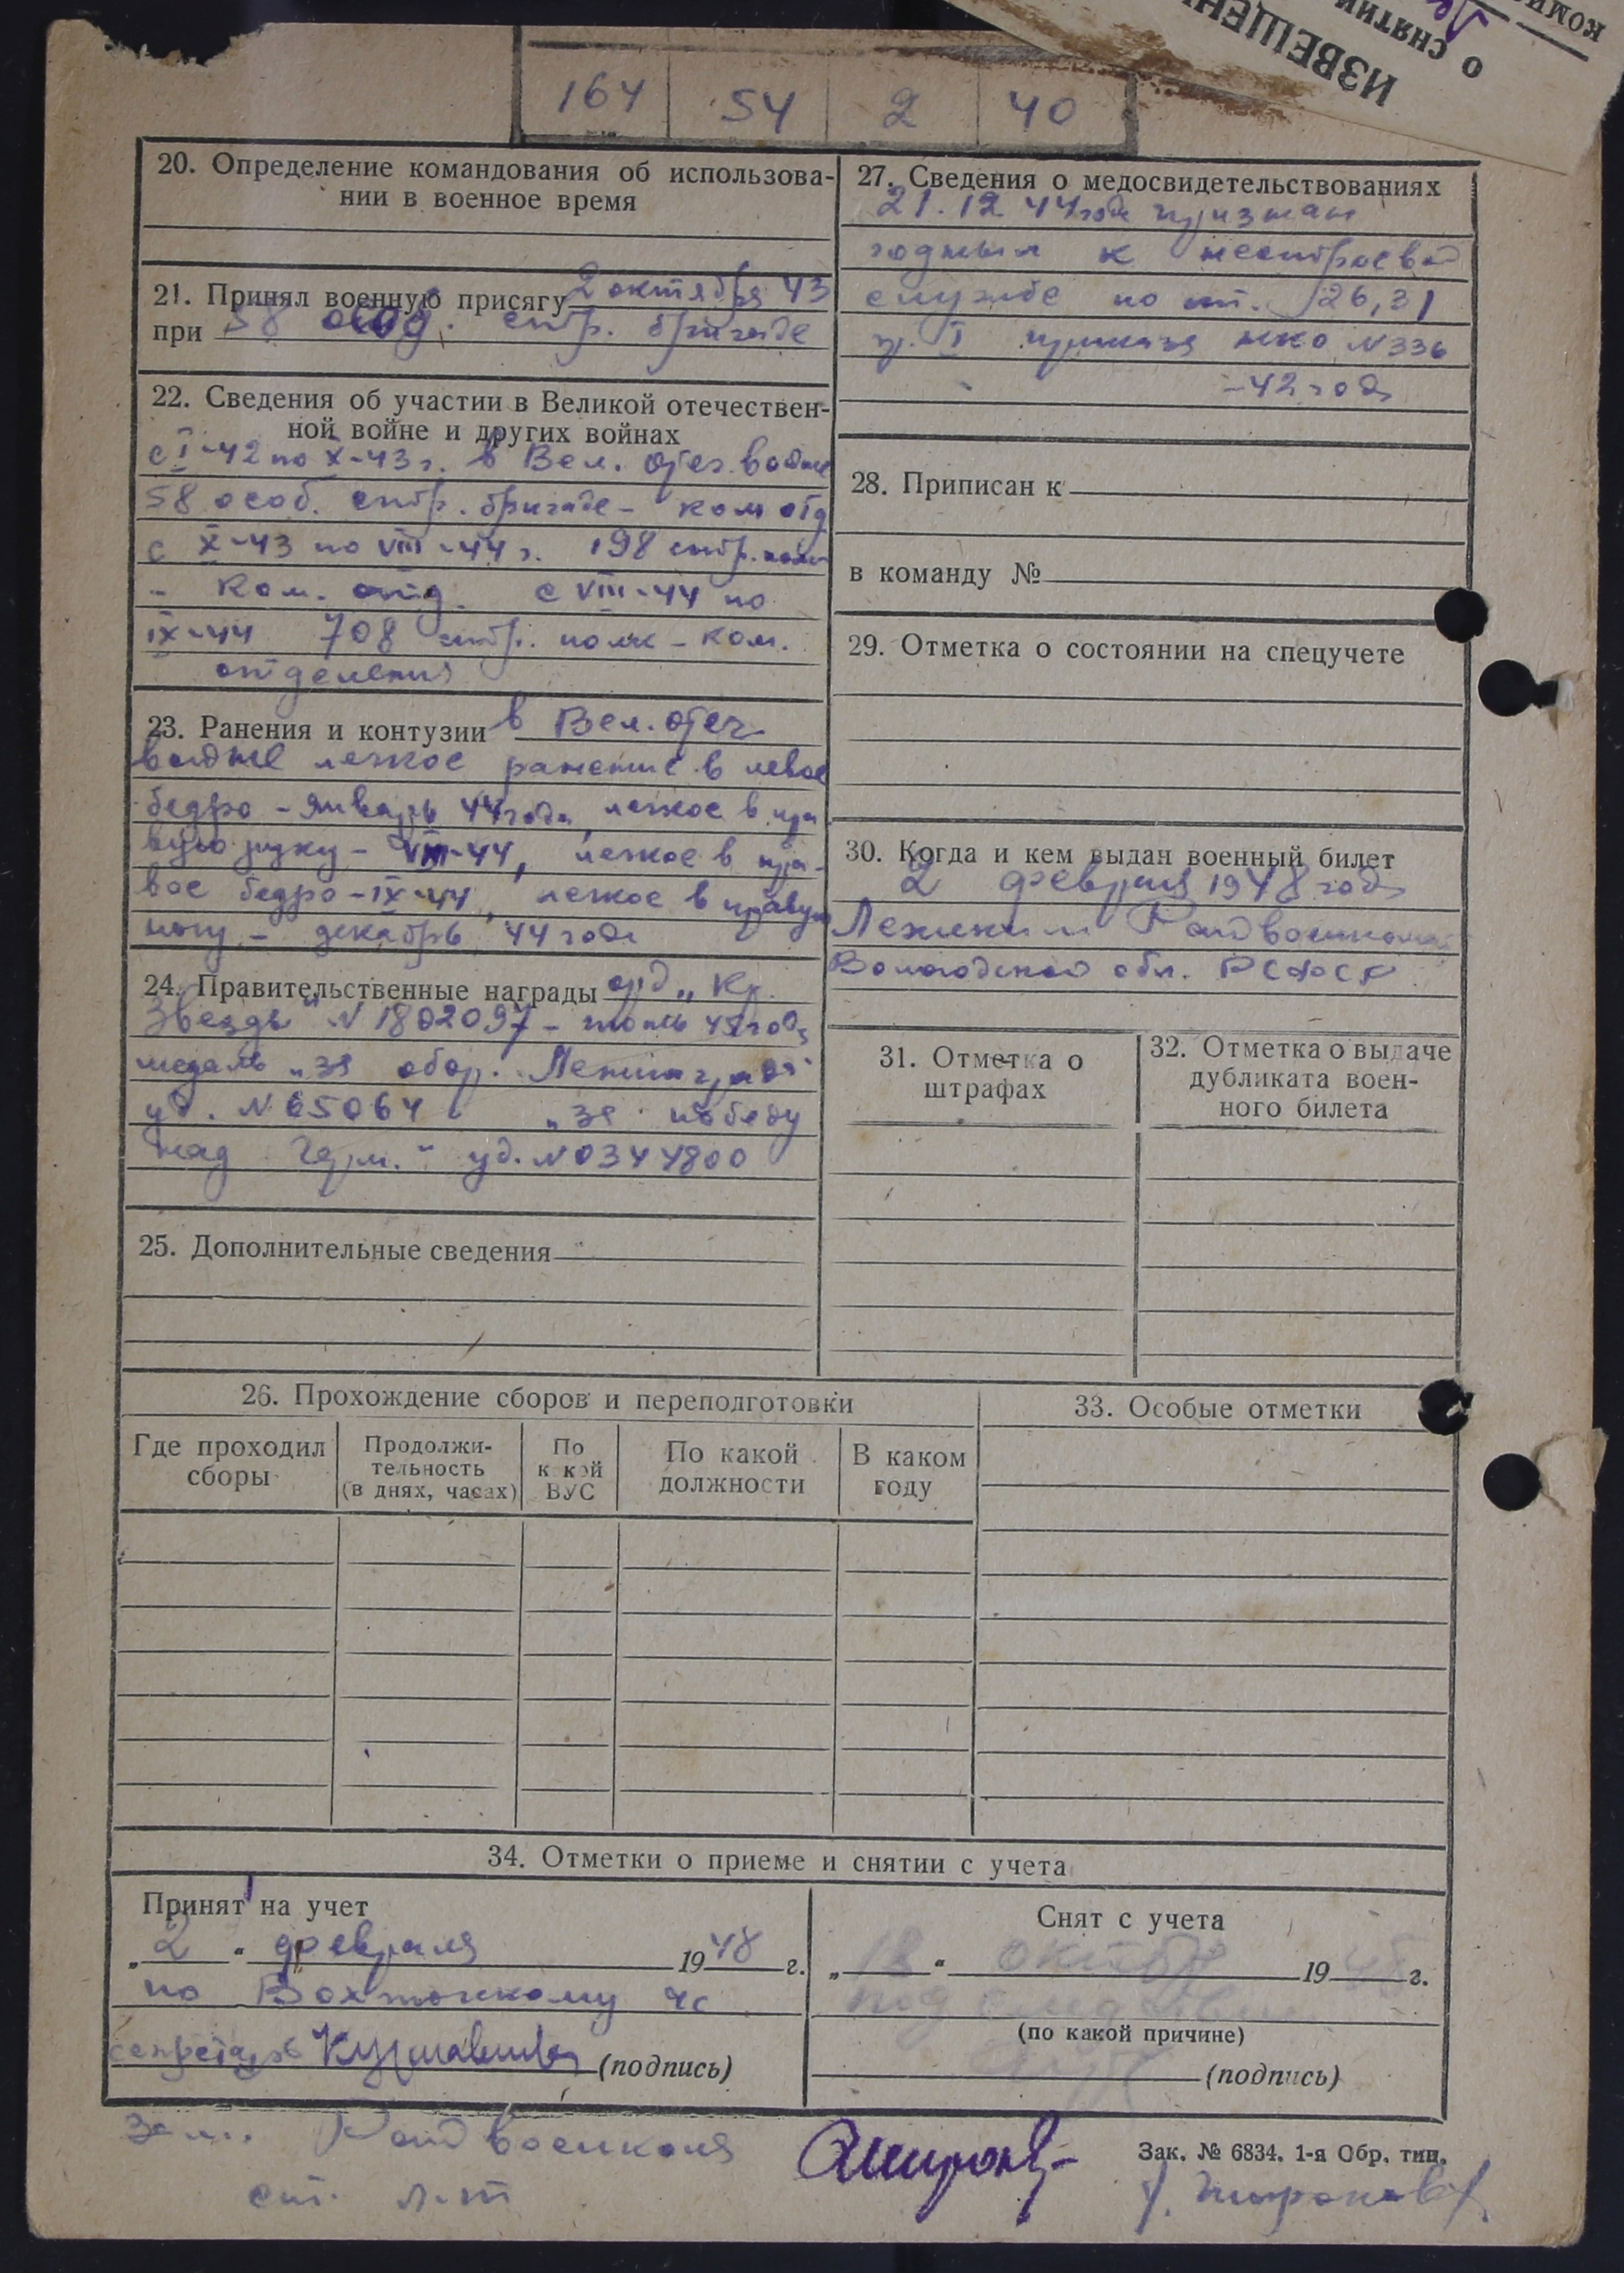 ИЗВЕЩЕН
о снятии
коми
164 54 2 40
20. Определение командования об использова-
нии в военное время
21. Принял военную присягу 2 октября 43
при 58 особ. стр. бригаде
22. Сведения об участии в Великой отечествен-
ной войне и других войнах
с I-42 по X-43 г. в Вел. отеч. войне
58 особ. стр. бригаде - ком отд
с X-43 по VIII-44 г. 198 стр. полк
- Ком. отд. с VIII-44 по
IX-44 708 стр. полк - ком.
отделения
23. Ранения и контузии в Вел. отеч
войне легкое ранение в левое
бедро - январь 44 года, легкое в пра
вую руку - VIII-44, легкое в пра-
вое бедро - IX-44, легкое в правую
ногу - декабрь 44 года
24. Правительственные награды орд „Кр.
Звезды" N 1802097 - года
медаль „за обор. Ленинграда"
уд. N 65064 „за победу
над Герм." уд. N 0344800
25. Дополнительные сведения
27. Сведения о медосвидетельствованиях
21.12 44 года признан
годным к нестроевой
службе по ст. 26, 31
гр. I приказа НКО N 336
-42 года
28. Приписан к
в команду №
29. Отметка о состоянии на спецучете
30. Когда и кем выдан военный билет
2 февраля 1948 года
Райвоенкомат
Вологодской обл. РСФСР
31. Отметка о
штрафах
32. Отметка о выдаче
дубликата воен-
ного билета
26. Прохождение сборов и переподготовки
Где проходил
сборы
Продолжи-
тельность
(в днях, часах)
По
какой
ВУС
По какой
должности
В каком
году
33. Особые отметки
34. Отметки о приеме и снятии с учета
Принят на учет
„2" февраля 1948 г.
по Вохтожскому чс
секретарь (подпись)
Снят с учета
„18" октяб 1948 г.
под следствие
(по какой причине)
(подпись)
Зам. Райвоенкома
ст. л-т
Зак. № 6834. 1-я Обр. тип.